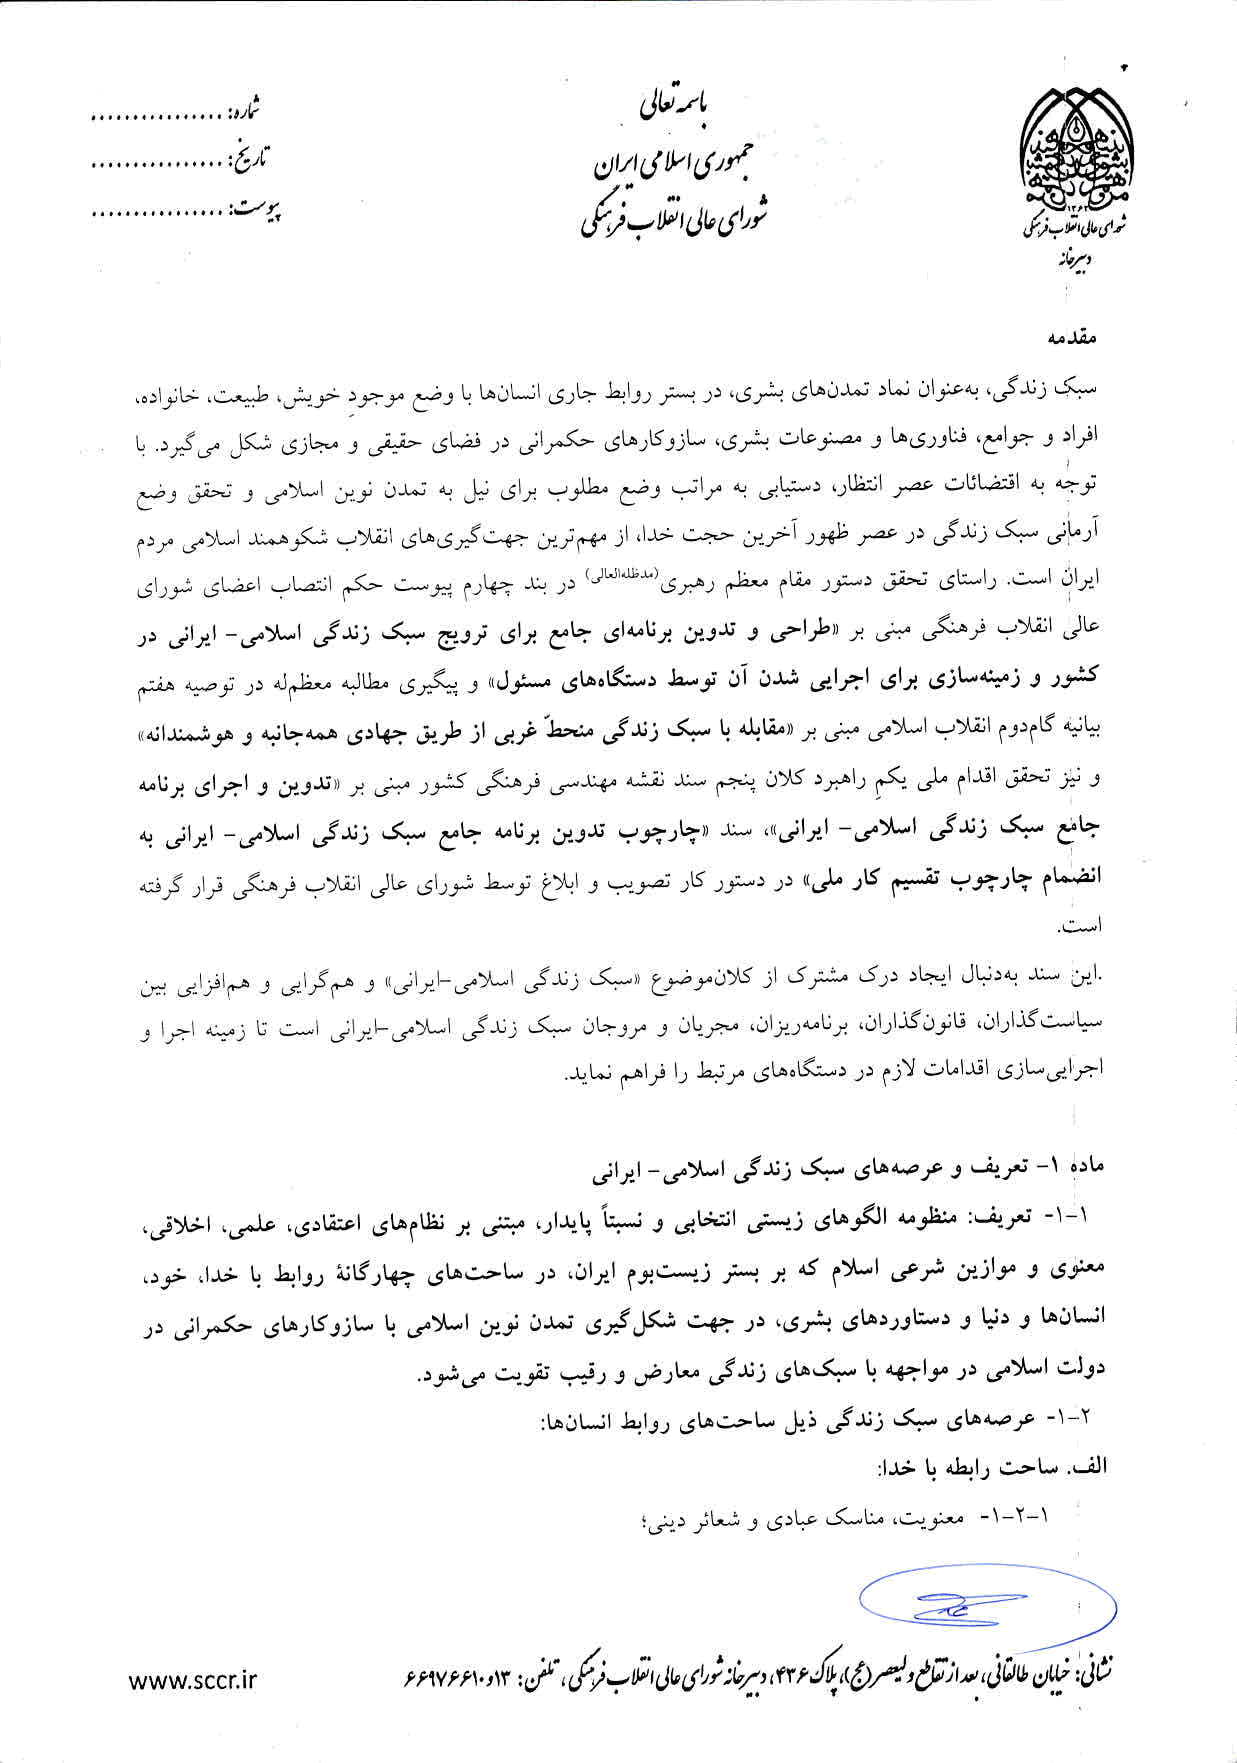 باسمه تعالی
جمهوری اسلامی ایران
شورای عالی انقلاب فرهنگی
شماره: ................
تاریخ: ................
پیوست: ................
۱۳۶۳
شورای عالی انقلاب فرهنگی
دبیرخانه
مقدمه
سبک زندگی، به‌عنوان نماد تمدن‌های بشری، در بستر روابط جاری انسان‌ها با وضع موجودِ خویش، طبیعت، خانواده،
افراد و جوامع، فناوری‌ها و مصنوعات بشری، سازوکارهای حکمرانی در فضای حقیقی و مجازی شکل می‌گیرد. با
توجه به اقتضائات عصر انتظار، دستیابی به مراتب وضع مطلوب برای نیل به تمدن نوین اسلامی و تحقق وضع
آرمانی سبک زندگی در عصر ظهور آخرین حجت خدا، از مهم‌ترین جهت‌گیری‌های انقلاب شکوهمند اسلامی مردم
ایران است. راستای تحقق دستور مقام معظم رهبری(مدظله‌العالی) در بند چهارم پیوست حکم انتصاب اعضای شورای
عالی انقلاب فرهنگی مبنی بر «طراحی و تدوین برنامه‌ای جامع برای ترویج سبک زندگی اسلامی- ایرانی در
کشور و زمینه‌سازی برای اجرایی شدن آن توسط دستگاه‌های مسئول» و پیگیری مطالبه معظم‌له در توصیه هفتم
بیانیه گام‌دوم انقلاب اسلامی مبنی بر «مقابله با سبک زندگی منحطّ غربی از طریق جهادی همه‌جانبه و هوشمندانه»
و نیز تحقق اقدام ملی یکمِ راهبرد کلان پنجم سند نقشه مهندسی فرهنگی کشور مبنی بر «تدوین و اجرای برنامه
جامع سبک زندگی اسلامی- ایرانی»، سند «چارچوب تدوین برنامه جامع سبک زندگی اسلامی- ایرانی به
انضمام چارچوب تقسیم کار ملی» در دستور کار تصویب و ابلاغ توسط شورای عالی انقلاب فرهنگی قرار گرفته
است.
.این سند به‌دنبال ایجاد درک مشترک از کلان‌موضوع «سبک زندگی اسلامی-ایرانی» و هم‌گرایی و هم‌افزایی بین
سیاست‌گذاران، قانون‌گذاران، برنامه‌ریزان، مجریان و مروجان سبک زندگی اسلامی-ایرانی است تا زمینه اجرا و
اجرایی‌سازی اقدامات لازم در دستگاه‌های مرتبط را فراهم نماید.
ماده ۱- تعریف و عرصه‌های سبک زندگی اسلامی- ایرانی
۱-۱- تعریف: منظومه الگوهای زیستی انتخابی و نسبتاً پایدار، مبتنی بر نظام‌های اعتقادی، علمی، اخلاقی،
معنوی و موازین شرعی اسلام که بر بستر زیست‌بوم ایران، در ساحت‌های چهارگانهٔ روابط با خدا، خود،
انسان‌ها و دنیا و دستاوردهای بشری، در جهت شکل‌گیری تمدن نوین اسلامی با سازوکارهای حکمرانی در
دولت اسلامی در مواجهه با سبک‌های زندگی معارض و رقیب تقویت می‌شود.
۱-۲- عرصه‌های سبک زندگی ذیل ساحت‌های روابط انسان‌ها:
الف. ساحت رابطه با خدا:
۱-۲-۱- معنویت، مناسک عبادی و شعائر دینی؛
نشانی: خیابان طالقانی، بعد از تقاطع ولیعصر(عج)، پلاک ۴۳۶، دبیرخانه شورای عالی انقلاب فرهنگی، تلفن: ۱۳و۶۶۹۷۶۶۱۰
www.sccr.ir